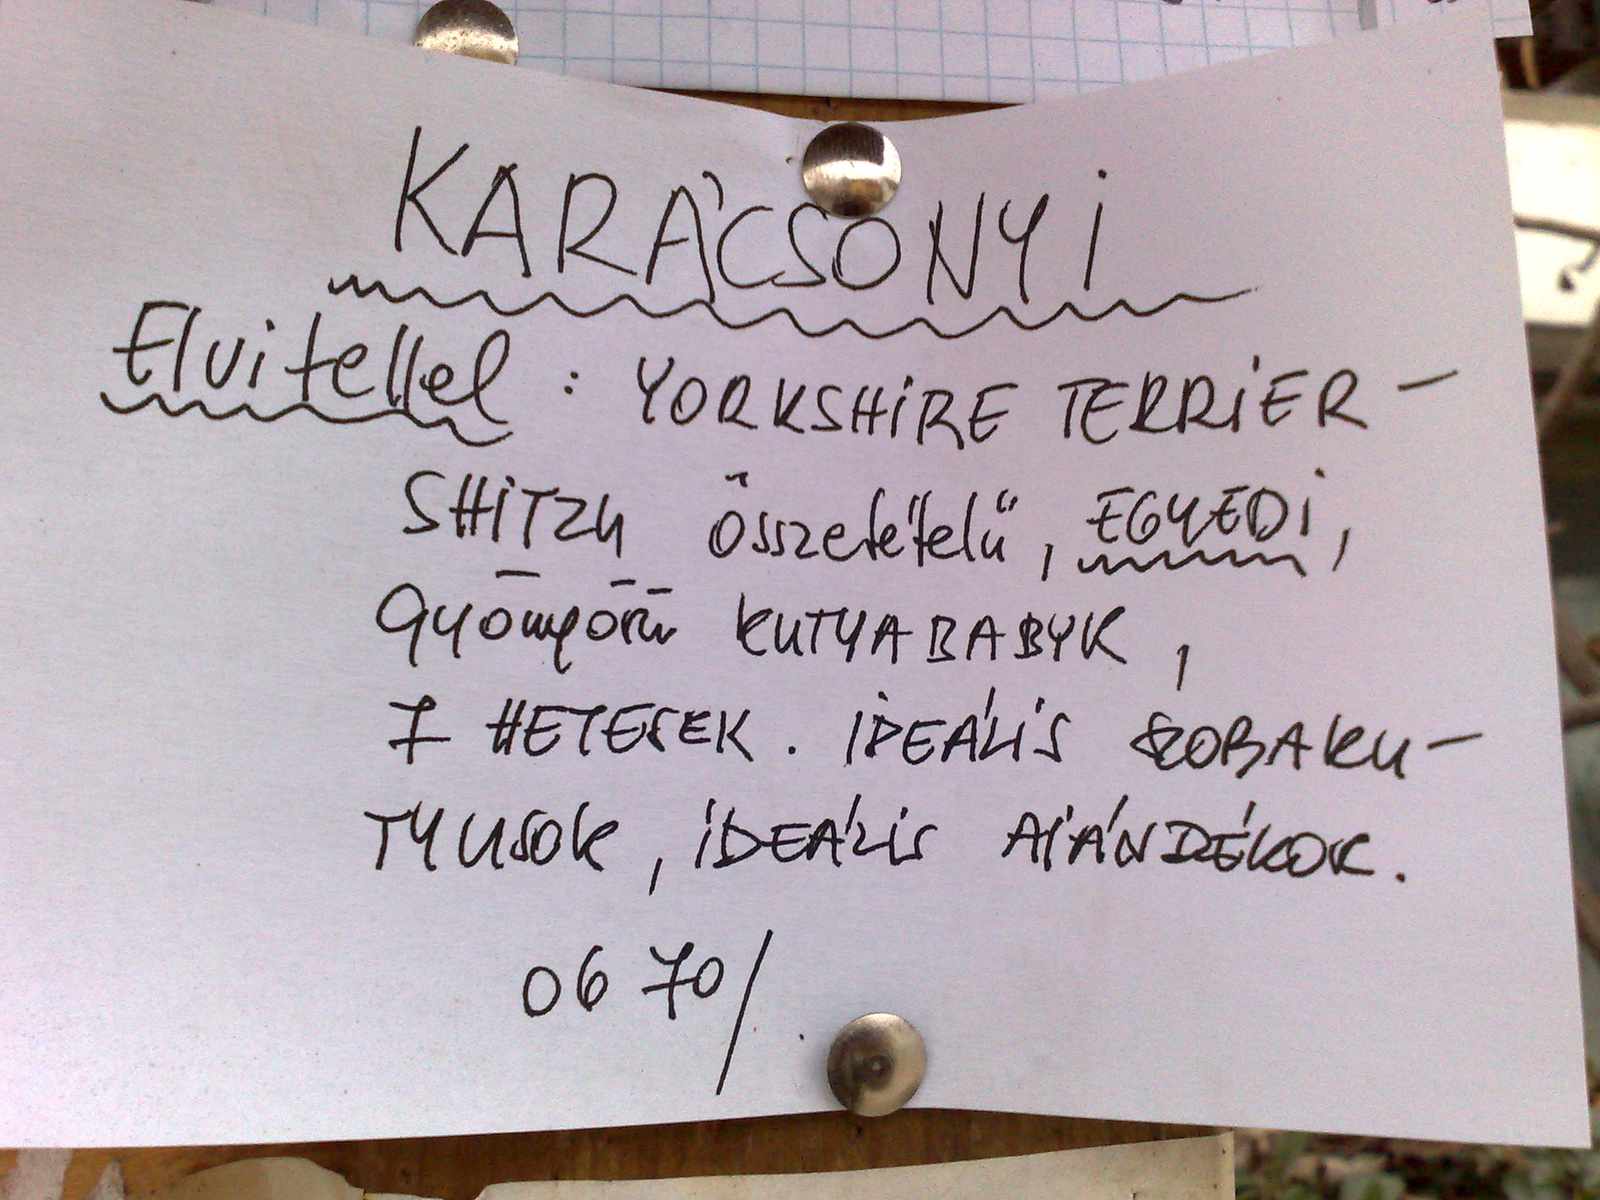 KARÁCSONYI
Elvitellel : YORKSHIRE TERRIER-
SHITZU összetételű, EGYEDI,
gyönyörű KUTYABABYK,
7 HETESEK. IDEÁLIS SZOBAKU-
TYUSOK, IDEÁLIS AJÁNDÉKOK.
06 70/